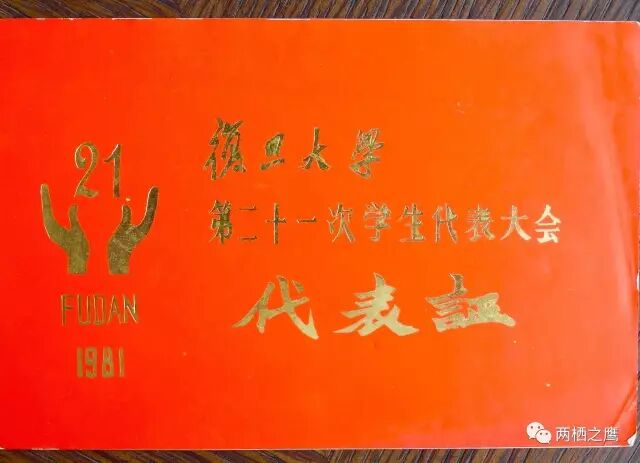 21
FUDAN
1981
復旦大學
第二十一次学生代表大会
代表証
两栖之鹰